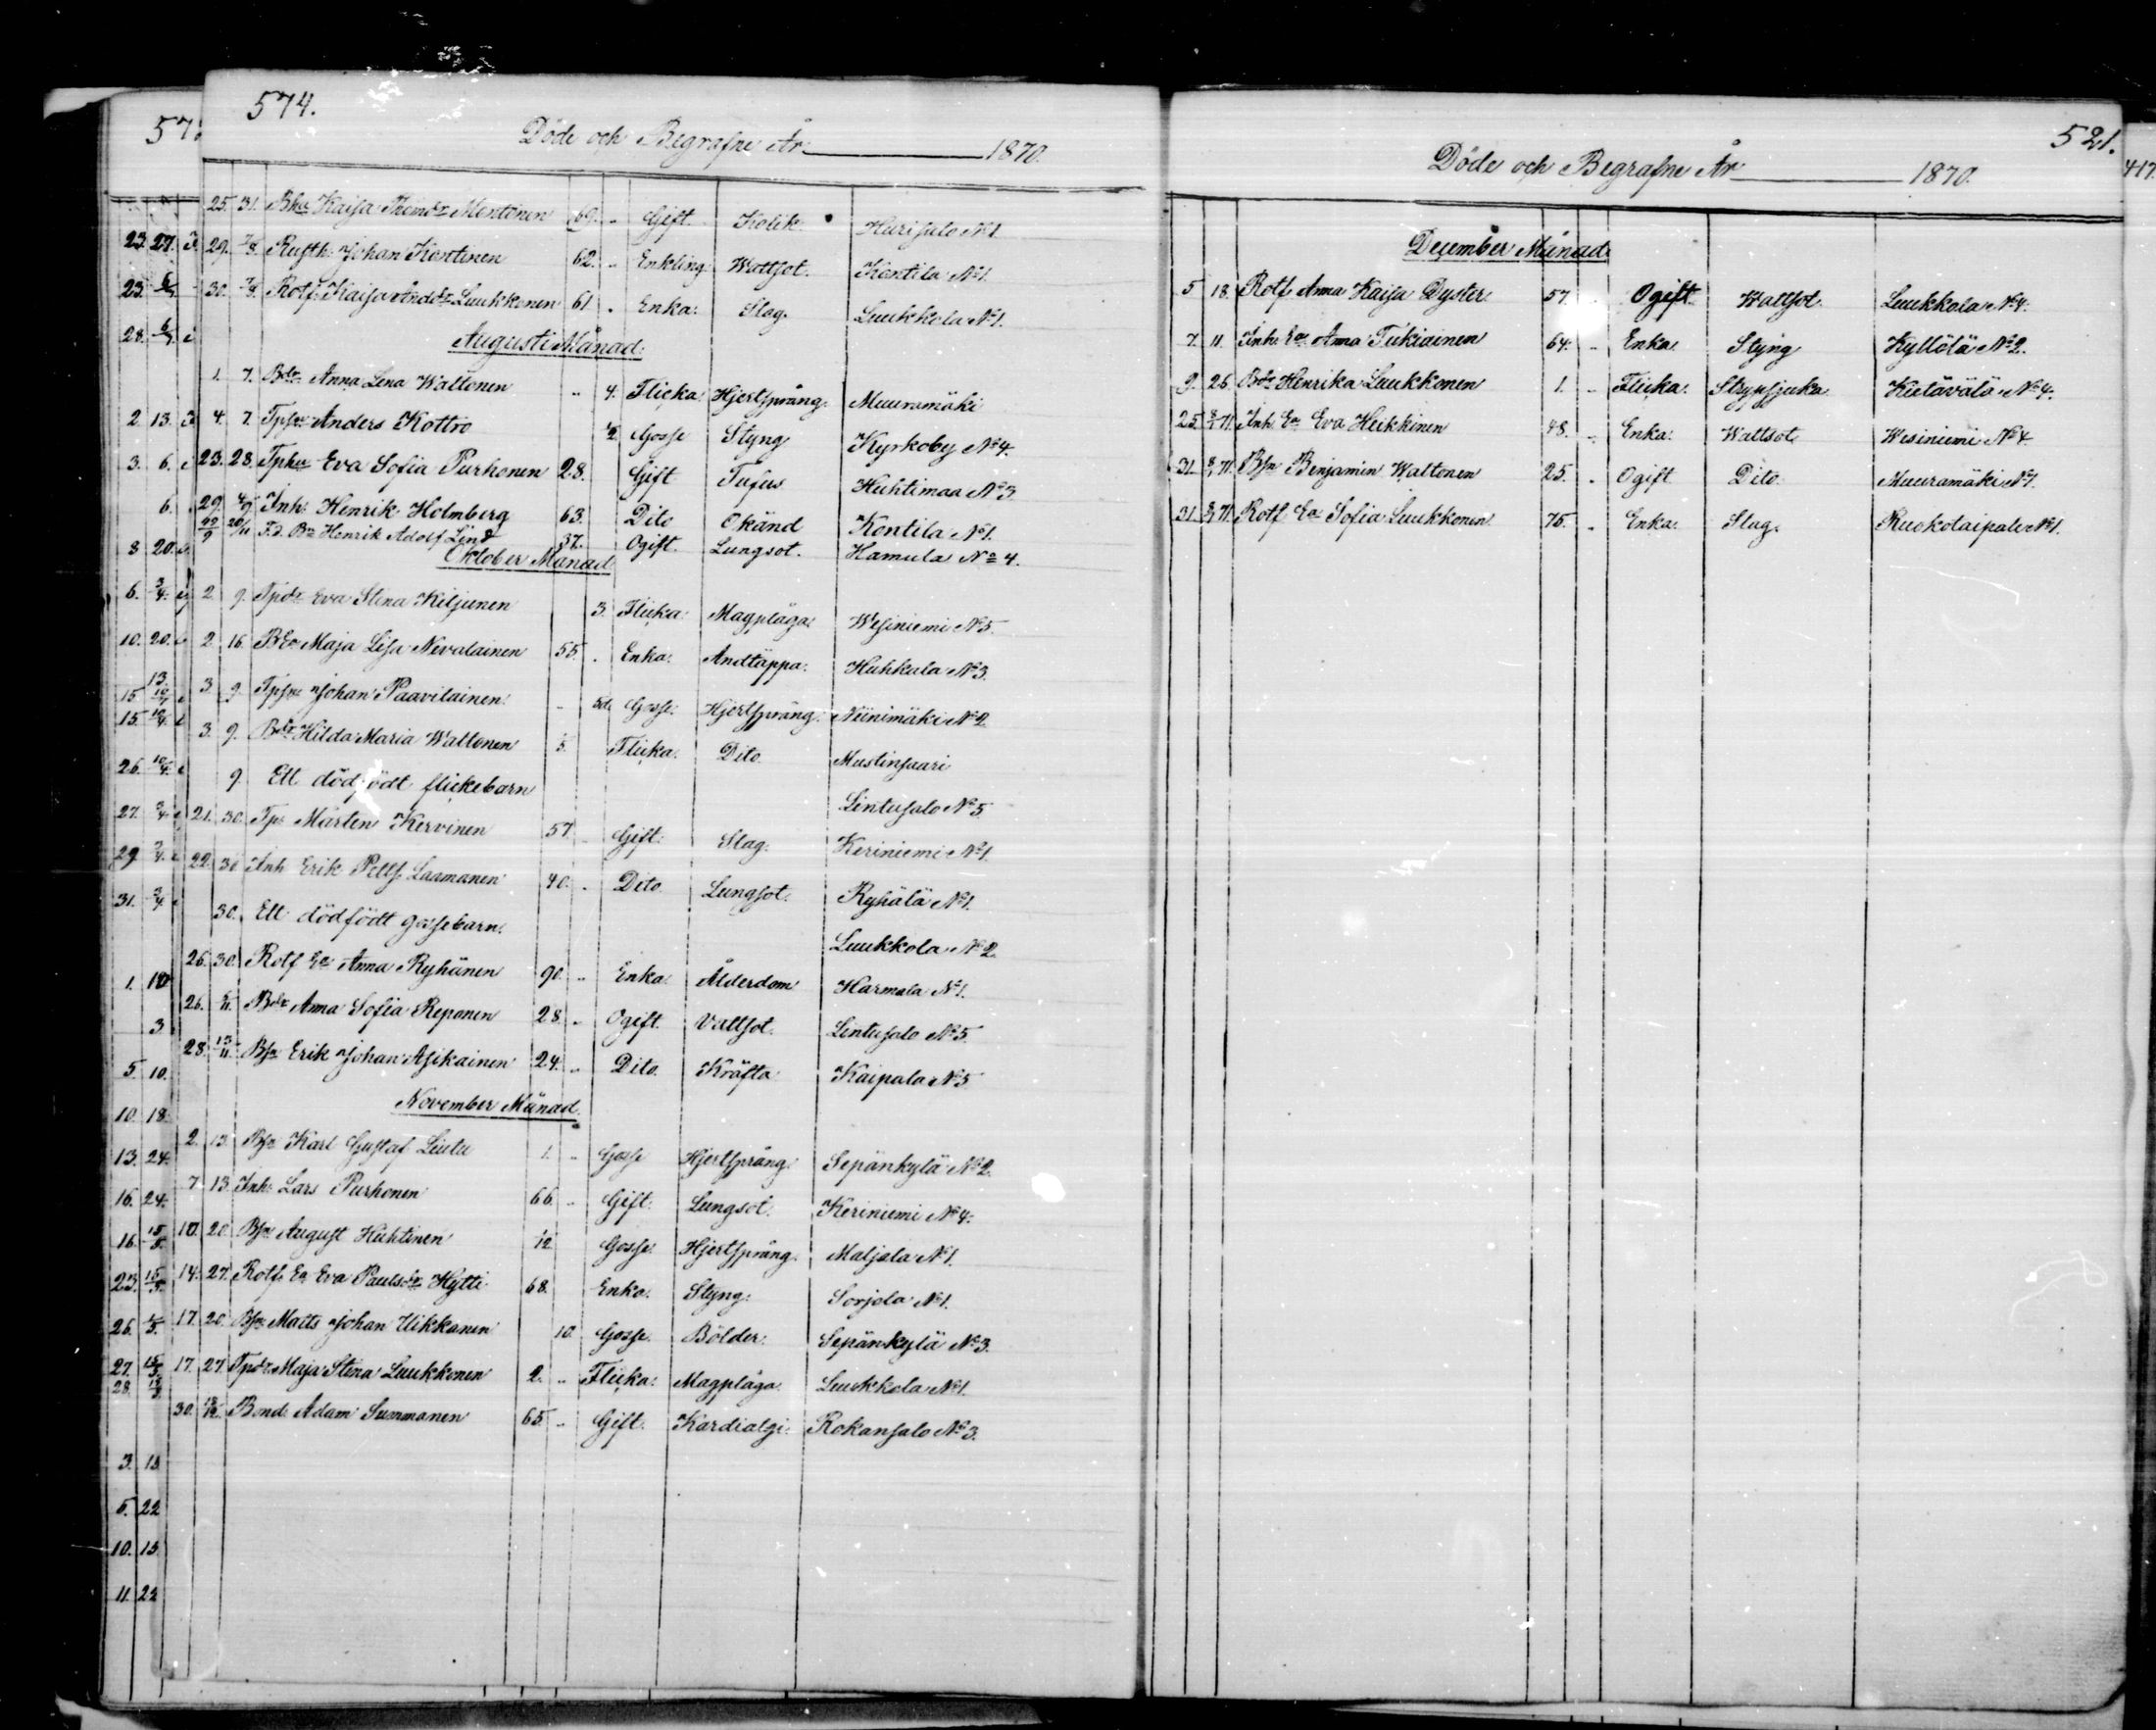 574.
Döde och Begrafne År 1870.
25. 31. Bhu Kaisa Thomdr Montonen 69. " Gift. Kolik. Hurisalo No 1.
29. 7/8. Rusth. Johan Kontinen 62. " Enkling Wattsot. Kontila No 1.
30. 7/8. Rotf. Kaisa Anddr Luukkonen 61. " Enka. Slag. Luukkola No 1.
Augusti Månad.
1. 7. Bdr Anna Lena Waltonen " 4. Flicka. Hjertsprång. Muuramäki
4. 7. Tpsn Anders Kottro 1/2 Gosse Styng Kyrkoby No 4.
23. 28. Tphu Eva Sofia Purhonen 28. Gift Tufus Huhtimaa No 3
29. 4/9 Inh. Henrik Holmberg 63. Dito Okänd Kontila No 1.
20/11 F.d. Bn Henrik Adolf Lind 37. Ogift. Lungsot. Hamula No 4.
Oktober Månad
2. 9. Tpdr Eva Stina Kiljunen 3. Flicka. Magplåga. Wesiniemi No 5.
2. 16. BEa Maja Lisa Nevalainen 55. " Enka. Andtäppa. Huhkula No 3.
3. 9. Tpsn Johan Paavilainen. " 5d. Gosse. Hjertsprång. Niinimäki No 2.
3. 9. Bdr Hilda Maria Waltonen 5. Flicka. Dito Mustinsaari
9. Ett dödfödt flickebarn Lintusalo No 5
21. 30. Tp. Mårten Kervinen 57. Gift. Slag. Keriniemi No 1.
22. 30 Inh Erik Pettf. Laamanen 40. " Dito. Lungsot. Ryhälä No 1.
30. Ett dödfödt gossebarn. Luukkola No 2.
26. 30. Rotf Ea Anna Ryhänen 90. " Enka. Ålderdom Harmala No 1.
26. 6/11. Bdr Anna Sofia Reponen 28. " Ogift. Vattsot. Lintusalo No 5.
28. 13/11. Bsn Erik Johan Asikainen 24. " Dito. Kräfta Kaipala No 5
November Månad.
2. 13. Bsn Karl Gustaf Liutu 1. " Gosse Hjertsprång. Sepänkylä No 2.
7. 13. Inh. Lars Purhonen 66. " Gift. Lungsot. Keriniemi No 4.
10. 20. Bsn August Huhtinen 1/2 Gosse. Hjertsprång. Maljala No 1.
14. 27. Rotf. Ea Eva Paulsdr Hytti 68. Enka. Styng. Sorjola No 1.
17. 20. Bsn Matts Johan Ukkanen 10. Gosse. Bölder. Sepänkylä No 3.
17. 27. Tpdr Maja Stina Luukkonen 2. " Flicka. Magplåga. Luukkola No 1.
30. 18/12. Bond. Adam Summanen 65. " Gift. Kardialgi. Rokansalo No 3.
521.
Döde och Begrafne År 1870.
December Månad.
5 18. Rotf Anna Kaisa Dyster 57. " Ogift Wattsot Luukkola No 4.
7. 11. Inh. Ea Anna Tukiainen 64. " Enka. Styng Kyllölä No 2.
9. 26. Bdr Henrika Luukkonen 1. " Flicka. Strypsjuka Kietävälä No 4.
25. 8/1 71. Inh. Ea Eva Heikkinen 48. " Enka. Wattsot Wesiniemi No 4
31. 8/1 71. Bsn Benjamin Waltonen 25. " Ogift Dito. Muuramäki No 1.
31. 8/1 71. Rotf Ea Sofia Luukkonen 75. " Enka. Slag. Ruokolaipale No 1.